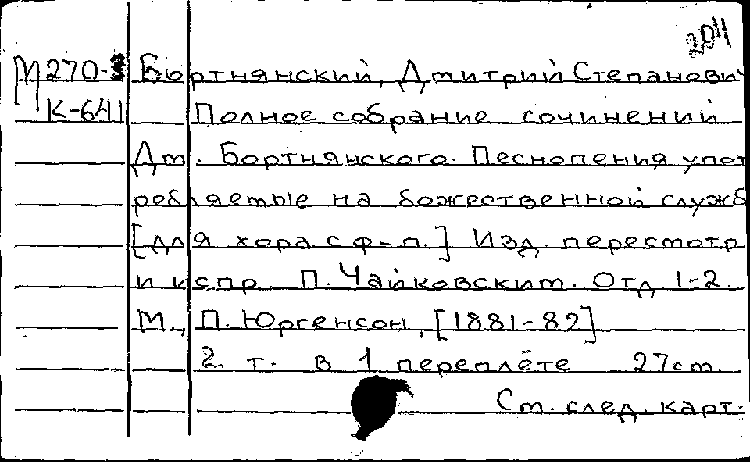 204
М270-3 Бортнянский, Дмитрий Степанович
К-641 Полное собрание сочинений
Дм. Бортнянского. Песнопения упот
ребляемые на божественной служб
[для хора с ф-п.] Изд. пересмотр
и испр П. Чайковским. Отд 1-2.
М., П. Юргенсон, [1881-82]
2. т. в 1 переплёте 27см
См. след. карт.